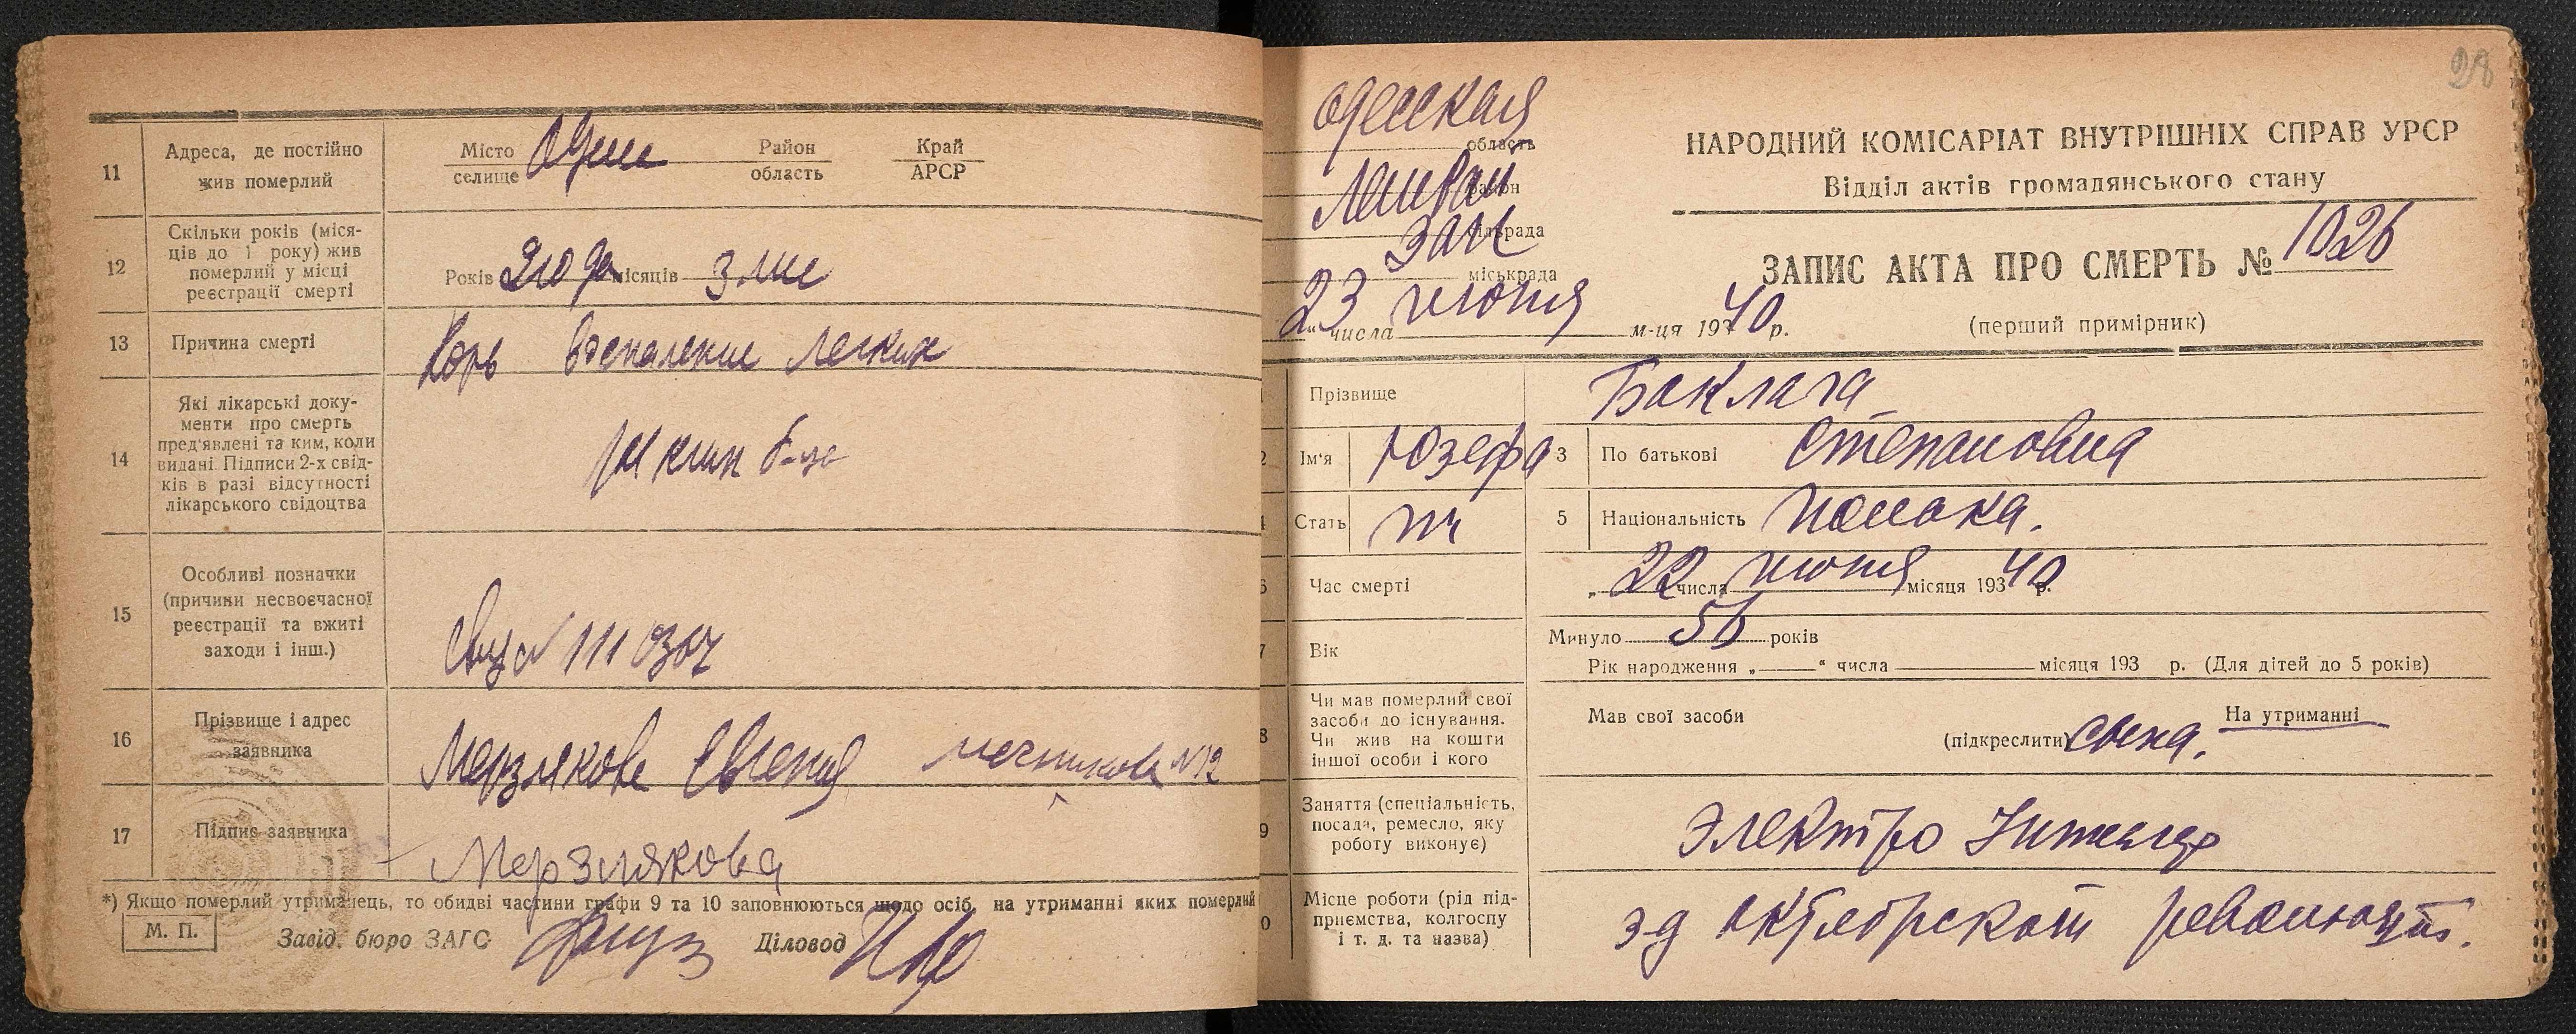 11
Адреса, де постійно
жив померлий
Місто
селище
Одесса
Район
область
Край
АРСР
12
Скільки років (міся-
ців до 1 року) жив
померлий у місці
реєстрації смерті
Років 2 года місяців 3 мес
13
Причина смерті
Корь воспаление легких
14
Які лікарські доку-
менти про смерть
пред'явлені та ким, коли
видані. Підписи 2-х свід-
ків в разі відсутності
лікарського свідоцтва
клин б-ца
15
Особливі позначки
(причини несвоєчасної
реєстрації та вжиті
заходи і інш.)
16
Прізвище і адрес
заявника
Мерзлякова Евгения Мечникова №12
17
Підпис заявника
Мерзлякова
*) Якщо померлий утриманець, то обидві частини графи 9 та 10 заповнюються щодо осіб, на утриманні яких померлий
М. П.
Завід. бюро ЗАГС
Діловод
28
Одесская
область
Ленрай
район
ЗАГС
сільрада
міськрада
„23" числа июня м-ця 1940 р.
НАРОДНИЙ КОМІСАРІАТ ВНУТРІШНІХ СПРАВ УРСР
Відділ актів громадянського стану
ЗАПИС АКТА ПРО СМЕРТЬ № 1026
(перший примірник)
Прізвище
Баклага
2 Ім'я Юзефа
3 По батькові Степановна
Стать
5 Національність полька.
Час смерті
„22 числа июня місяця 1940 р.
Вік
Минуло 56 років
Рік народження „ “ числа місяця 193 р. (Для дітей до 5 років)
8
Чи мав померлий свої
засоби до існування.
Чи жив на кошти
іншої особи і кого
Мав свої засоби
(підкреслити)
На утриманні
сына.
9
Заняття (спеціальність,
посада, ремесло, яку
роботу виконує)
Электро Инженер
0
Місце роботи (рід під-
приємства, колгоспу
і т. д. та назва)
зд Октябрской революции.